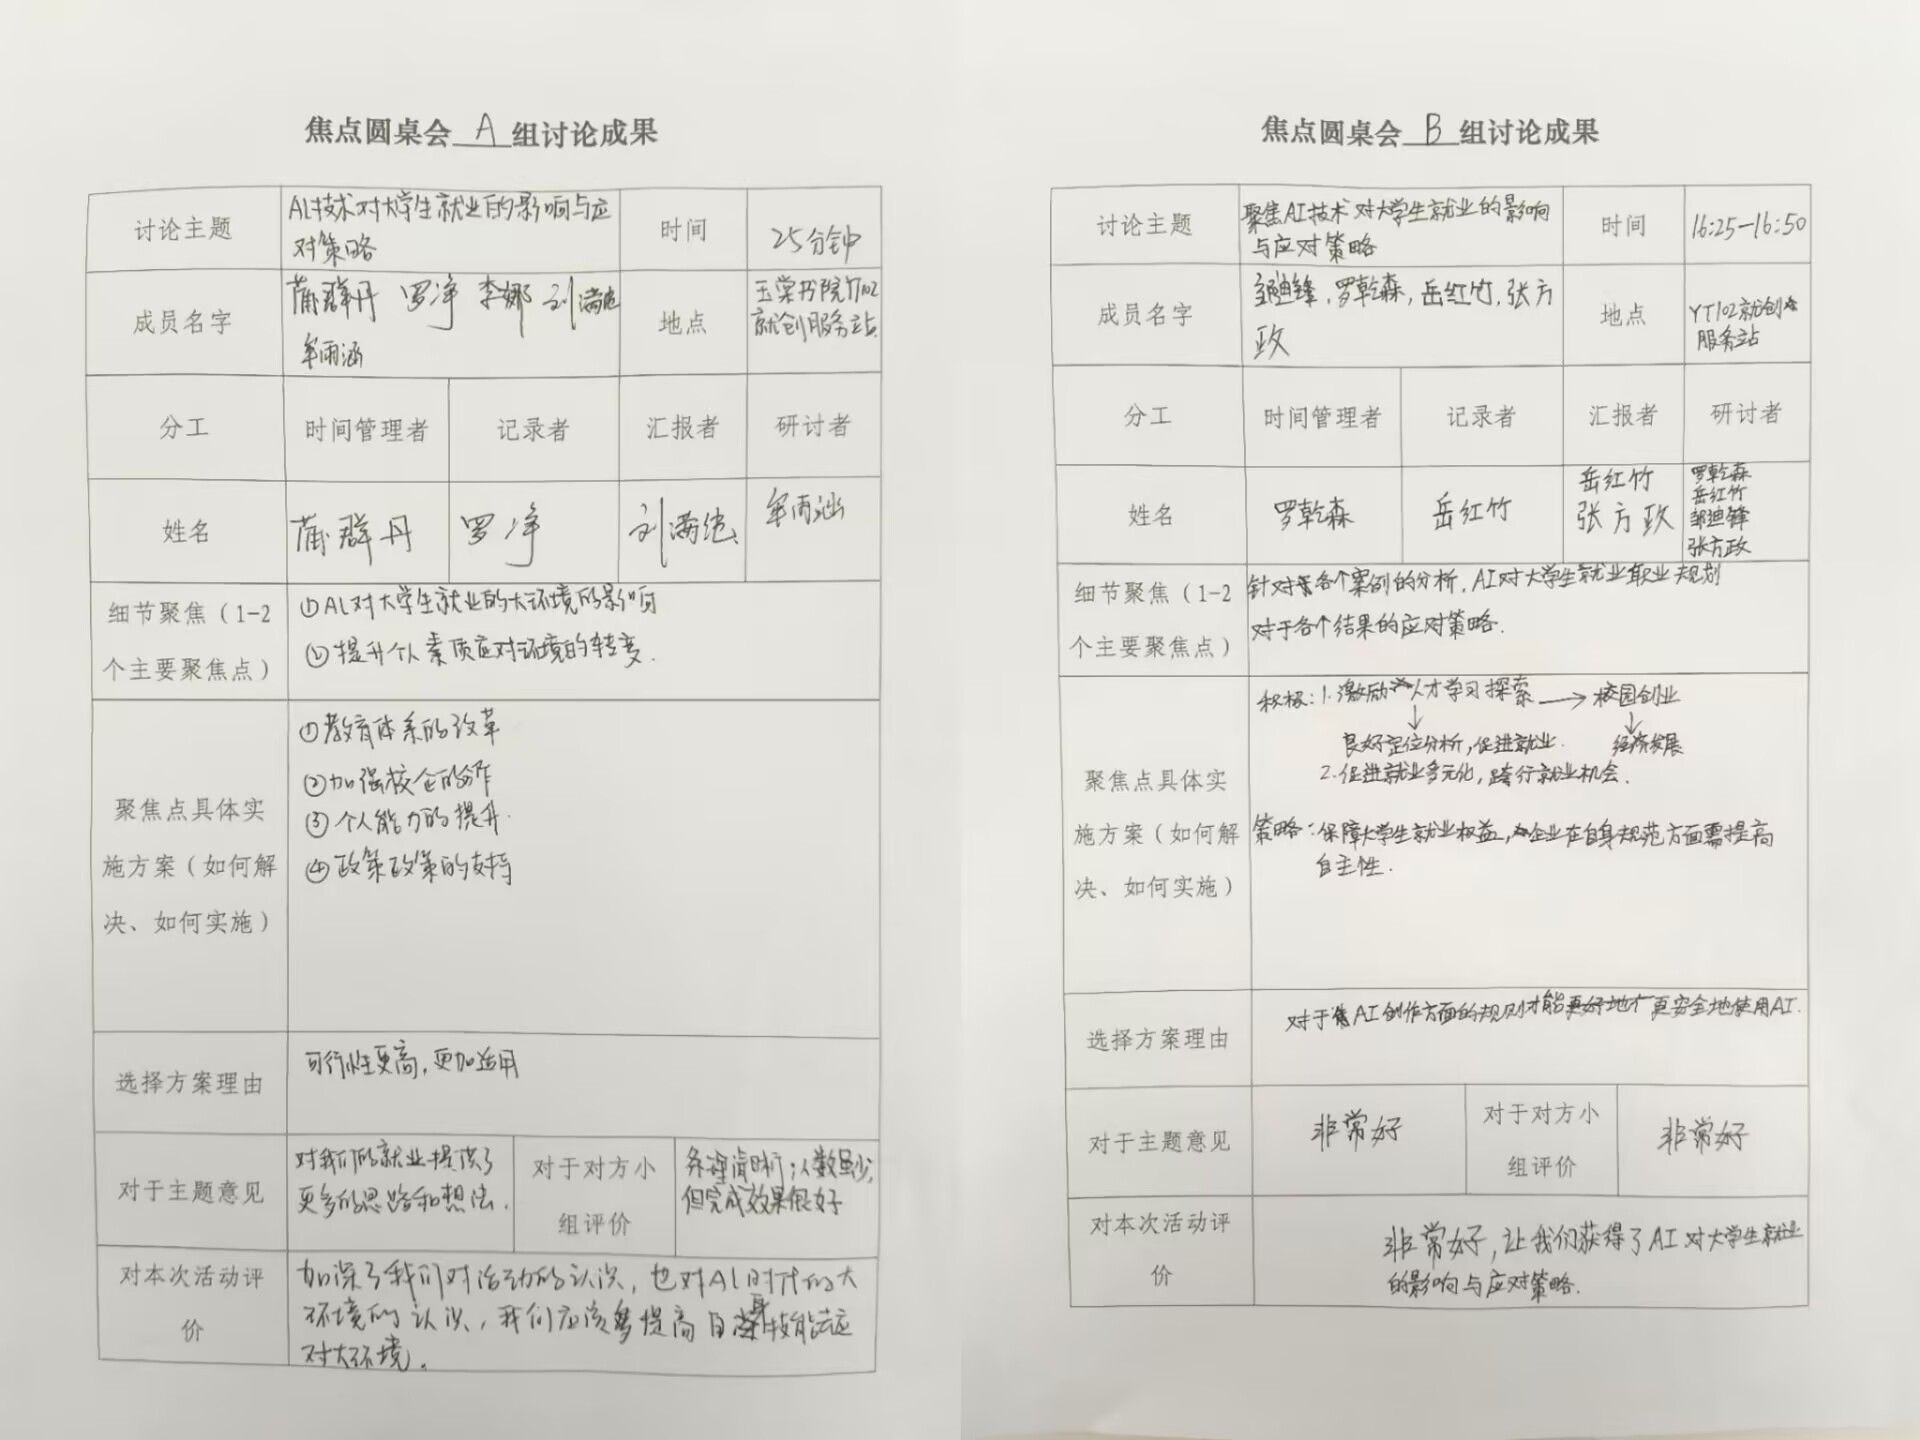 焦点圆桌会 A 组讨论成果
讨论主题
AI技术对大学生就业的影响与应
对策略
时间
25分钟
成员名字
蒲群丹 罗净 李娜 刘满
牟雨涵
地点
玉棠书院YT102
就创服务站
分工
时间管理者
记录者
汇报者
研讨者
姓名
蒲群丹
罗净
刘满
牟雨涵
细节聚焦（1-2
个主要聚焦点）
①AI对大学生就业的大环境的影响
②提升个人素质应对环境的转变.
聚焦点具体实
施方案（如何解
决、如何实施）
①教育体系的改革
②加强校企的合作
③个人能力的提升.
④政策政策的支持
选择方案理由
可行性更高,更加适用
对于主题意见
对我们的就业提供了
更多的思路和想法.
对于对方小
组评价
条理清晰;人数虽少,
但完成效果很好
对本次活动评
价
加深了我们对活动的认识,也对AI时代的大
环境的认识,我们应该多提高自身技能去应
对大环境.
焦点圆桌会 B 组讨论成果
讨论主题
聚焦AI技术对大学生就业的影响
与应对策略
时间
16:25-16:50
成员名字
邹迪锋,罗乾森,岳红竹,张方
政
地点
YT102就创
服务站
分工
时间管理者
记录者
汇报者
研讨者
姓名
罗乾森
岳红竹
岳红竹
张方政
罗乾森
岳红竹
邹迪锋
张方政
细节聚焦（1-2
个主要聚焦点）
针对于各个案例的分析,AI对大学生就业职业规划
对于各个结果的应对策略.
聚焦点具体实
施方案（如何解
决、如何实施）
积极:1.激励人才学习探索→校园创业
↓ ↓
良好定位分析,促进就业. 经济发展
2.促进就业多元化,跨行就业机会.
策略:保障大学生就业权益,企业在自身规范方面需提高
自主性.
选择方案理由
对于AI创作方面的规则才能更好地更安全地使用AI.
对于主题意见
非常好
对于对方小
组评价
非常好
对本次活动评
价
非常好,让我们获得了AI对大学生就业
的影响与应对策略.